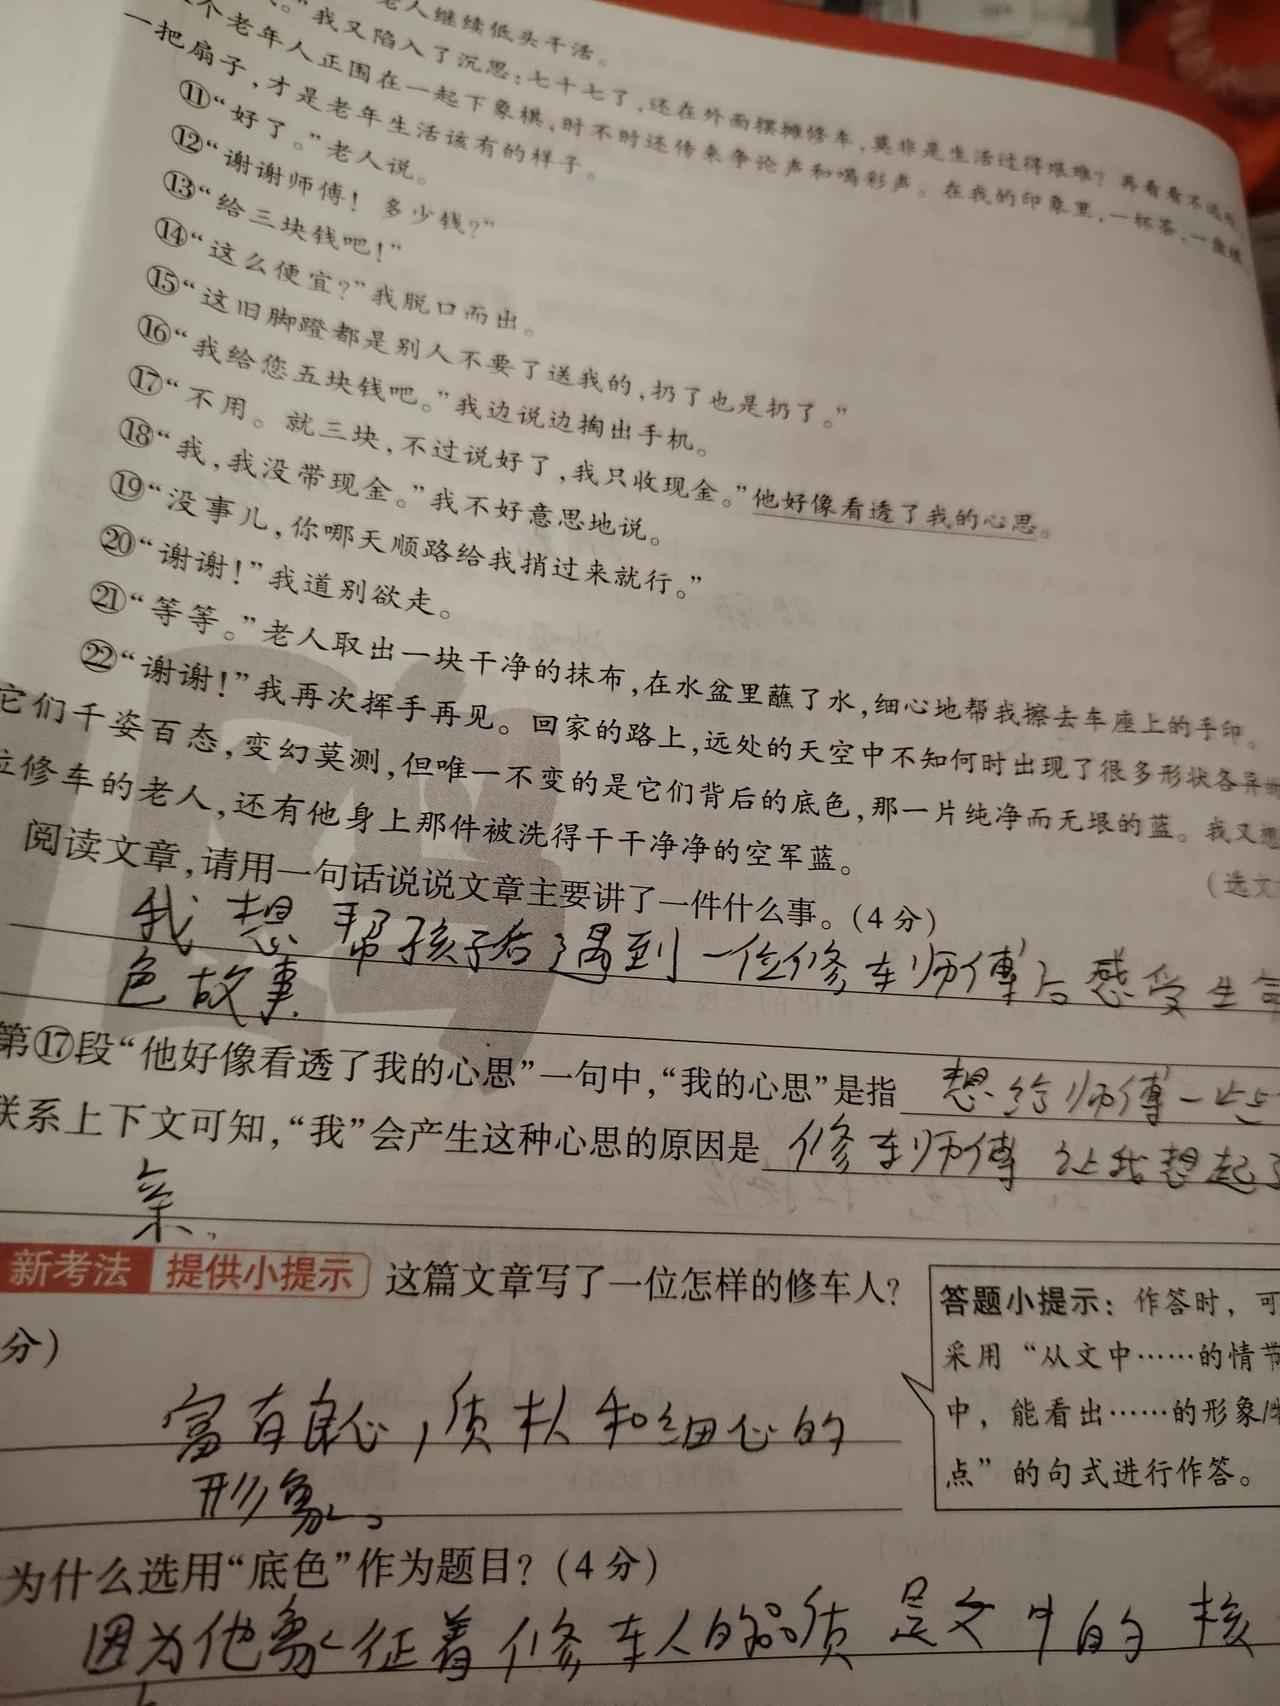 老人继续低头干活。
。”我又陷入了沉思：七十七了，还在外面摆摊修车，莫非是生活过得艰难？再看看不远处，
个老年人正围在一起下象棋，时不时还传来争论声和喝彩声。在我的印象里，一杯茶，一盘棋，
一把扇子，才是老年生活该有的样子。
⑪“好了。”老人说。
⑫“谢谢师傅！多少钱？”
⑬“给三块钱吧！”
⑭“这么便宜？”我脱口而出。
⑮“这旧脚蹬都是别人不要了送我的，扔了也是扔了。”
⑯“我给您五块钱吧。”我边说边掏出手机。
⑰“不用。就三块，不过说好了，我只收现金。”他好像看透了我的心思。
⑱“我，我没带现金。”我不好意思地说。
⑲“没事儿，你哪天顺路给我捎过来就行。”
⑳“谢谢！”我道别欲走。
㉑“等等。”老人取出一块干净的抹布，在水盆里蘸了水，细心地帮我擦去车座上的手印。
㉒“谢谢！”我再次挥手再见。回家的路上，远处的天空中不知何时出现了很多形状各异
它们千姿百态，变幻莫测，但唯一不变的是它们背后的底色，那一片纯净而无垠的蓝。我又想
位修车的老人，还有他身上那件被洗得干干净净的空军蓝。
（选文
阅读文章，请用一句话说说文章主要讲了一件什么事。（4分）
我想帮孩子后遇到一位修车师傅后感受生命
色故事
第⑰段“他好像看透了我的心思”一句中，“我的心思”是指 想给师傅一些
联系上下文可知，“我”会产生这种心思的原因是 修车师傅让我想起了
亲。
新考法 提供小提示 这篇文章写了一位怎样的修车人？
分）
答题小提示：作答时，可
采用“从文中……的情节
中，能看出……的形象/特
点”的句式进行作答。
富有良心，质朴和细心的
形象。
为什么选用“底色”作为题目？（4分）
因为他象征着修车人的品质是文中的核